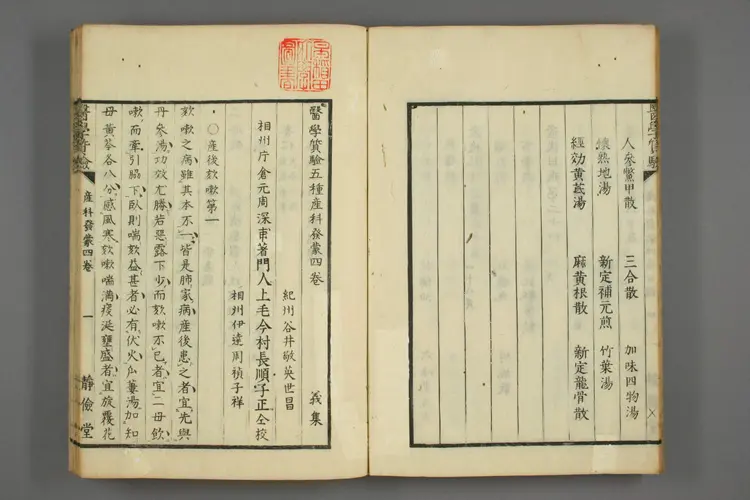 人參鱉甲散 三合散 加味四物湯
熟地湯 新定補元煎 竹葉湯
經効黃芪湯 麻黃根散 新定龍骨散
醫學質驗五種產科發蒙四卷 義集
紀州谷井敬英世昌
相州片倉元周深甫著門人上毛今村長順子正仝校
相州伊達周禎子祥
○產後欬嗽第一
欬嗽之病雖其本不一皆是肺家病產後患之者宜先與
丹參湯功效尤勝若惡露下少而欬嗽不已者宜二母飲
嗽而牽引脇下臥則喘欬益甚者必有伏火瓜蔞湯加知
母黃芩各八分感風寒欬嗽喘滿痰涎壅盛者宜旋覆花
醫學質驗
產科發蒙四卷
一
靜儉堂